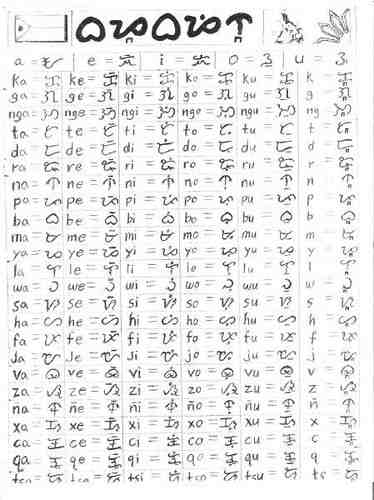 ᜊᜌ᜔ᜊᜌᜒᜈ᜔
a = ᜀ e = ᜁ i = ᜁ o = ᜂ u = ᜂ
ka = ᜃ ke = ᜃᜒ ki = ᜃᜒ ko = ᜃᜓ ku = ᜃᜓ k = ᜃ᜔
ga = ᜄ ge = ᜄᜒ gi = ᜄᜒ go = ᜄᜓ gu = ᜄᜓ g = ᜄ᜔
nga = ᜅ nge = ᜅᜒ ngi = ᜅᜒ ngo = ᜅᜓ ngu = ᜅᜓ ng = ᜅ᜔
ta = ᜆ te = ᜆᜒ ti = ᜆᜒ to = ᜆᜓ tu = ᜆᜓ t = ᜆ᜔
da = ᜇ de = ᜇᜒ di = ᜇᜒ do = ᜇᜓ du = ᜇᜓ d = ᜇ᜔
ra = ᜍ re = ᜍᜒ ri = ᜍᜒ ro = ᜍᜓ ru = ᜍᜓ r = ᜍ᜔
na = ᜈ ne = ᜈᜒ ni = ᜈᜒ no = ᜈᜓ nu = ᜈᜓ n = ᜈ᜔
pa = ᜉ pe = ᜉᜒ pi = ᜉᜒ po = ᜉᜓ pu = ᜉᜓ p = ᜉ᜔
ba = ᜊ be = ᜊᜒ bi = ᜊᜒ bo = ᜊᜓ bu = ᜊᜓ b = ᜊ᜔
ma = ᜋ me = ᜋᜒ mi = ᜋᜒ mo = ᜋᜓ mu = ᜋᜓ m = ᜋ᜔
ya = ᜌ ye = ᜌᜒ yi = ᜌᜒ yo = ᜌᜓ yu = ᜌᜓ y = ᜌ᜔
la = ᜎ le = ᜎᜒ li = ᜎᜒ lo = ᜎᜓ lu = ᜎᜓ l = ᜎ᜔
wa = ᜏ we = ᜏᜒ wi = ᜏᜒ wo = ᜏᜓ wu = ᜏᜓ w = ᜏ᜔
sa = ᜐ se = ᜐᜒ si = ᜐᜒ so = ᜐᜓ su = ᜐᜓ s = ᜐ᜔
ha = ᜑ he = ᜑᜒ hi = ᜑᜒ ho = ᜑᜓ hu = ᜑᜓ h = ᜑ᜔
fa = fe = fi = fo = fu = f =
Ja = Je = Ji = jo = ju = j =
va = ve = vi = vo = vu = v =
za = ze = zi = zo = zu = z =
ña = ñe = ñi = ño = ñu = ñ =
xa = xe = xi = xo = xu = x =
ca = ce = ci = co = cu = c =
qa = qe = qi = qo = qu = q =
tsa = tse = tsi = tso = tsu = ts =